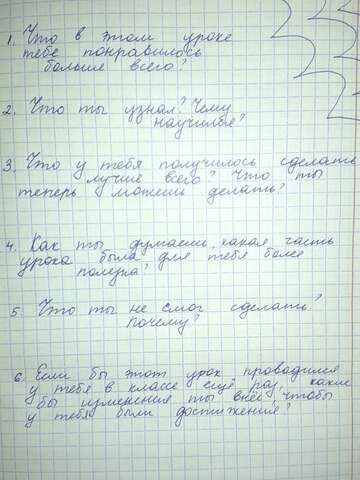 1. Что в этом уроке
тебе понравилось
больше всего?
2. Что ты узнал? Чему
научился?
3. Что у тебя получилось сделать
лучше всего? Что ты
теперь можешь делать?
4. Как ты думаеш, какая часть
урока была для тебя более
полезна?
5. Что ты не смог сделать?
Почему?
6. Если бы этот урок проводился
у тебя в классе ещё раз, какие
бы изменения ты внёс, чтобы
у тебя были достижения?